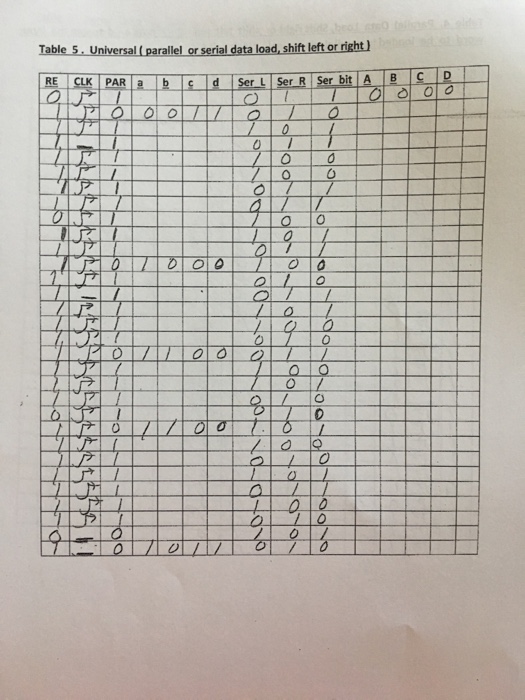 Table 5. Universal ( parallel or serial data load, shift left or right )
RE CLK PAR a b c d Ser L Ser R Ser bit A B C D
0 1 0 1 1 0 0 0 0
1 0 0 0 1 1 0 1 0
1 1 1 0 1
1 - 1 0 1 1
1 1 1 0 0
1 1 1 0 0
1 1 0 1 1
1 1 0 1 1
0 1 1 0 0
1 1 1 0 1
1 1 0 1 1
1 0 1 0 0 0 1 0 0
1 1 0 1 0
1 - 1 0 1 1
1 1 1 0 1
1 1 1 0 0
1 1 0 1 0
1 0 1 1 0 0 0 1 1
1 1 1 0 0
1 1 1 0 1
1 1 0 1 0
0 1 0 1 0
1 0 1 1 0 0 1 0 1
1 1 1 0 0
1 1 0 1 0
1 1 1 0 1
1 1 0 1 1
1 1 1 0 0
1 1 0 1 0
0 - 0 1 0 0
1 - 0 1 0 1 1 0 1 0